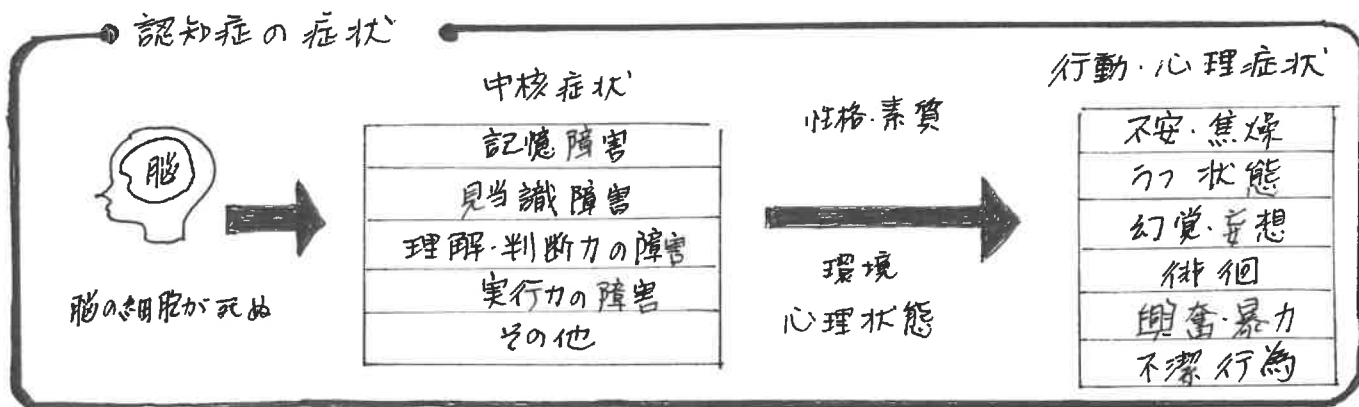 認知症の症状
脳
脳の細胞が死ぬ
中核症状
記憶障害
見当識障害
理解・判断力の障害
実行力の障害
その他
性格・素質
環境
心理状態
行動・心理症状
不安・焦燥
うつ状態
幻覚・妄想
徘徊
興奮・暴力
不潔行為